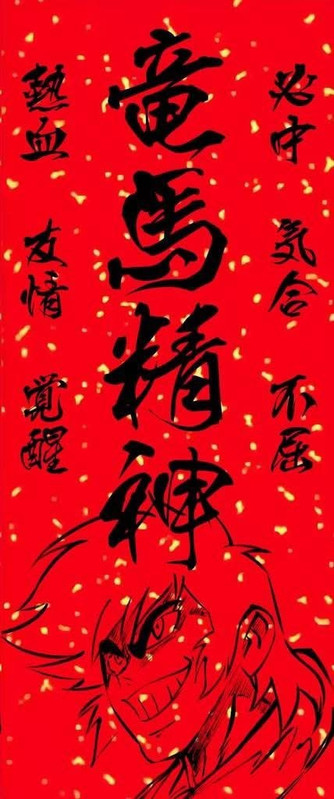 必中 気合 不屈
竜馬精神
熱血 友情 覚醒